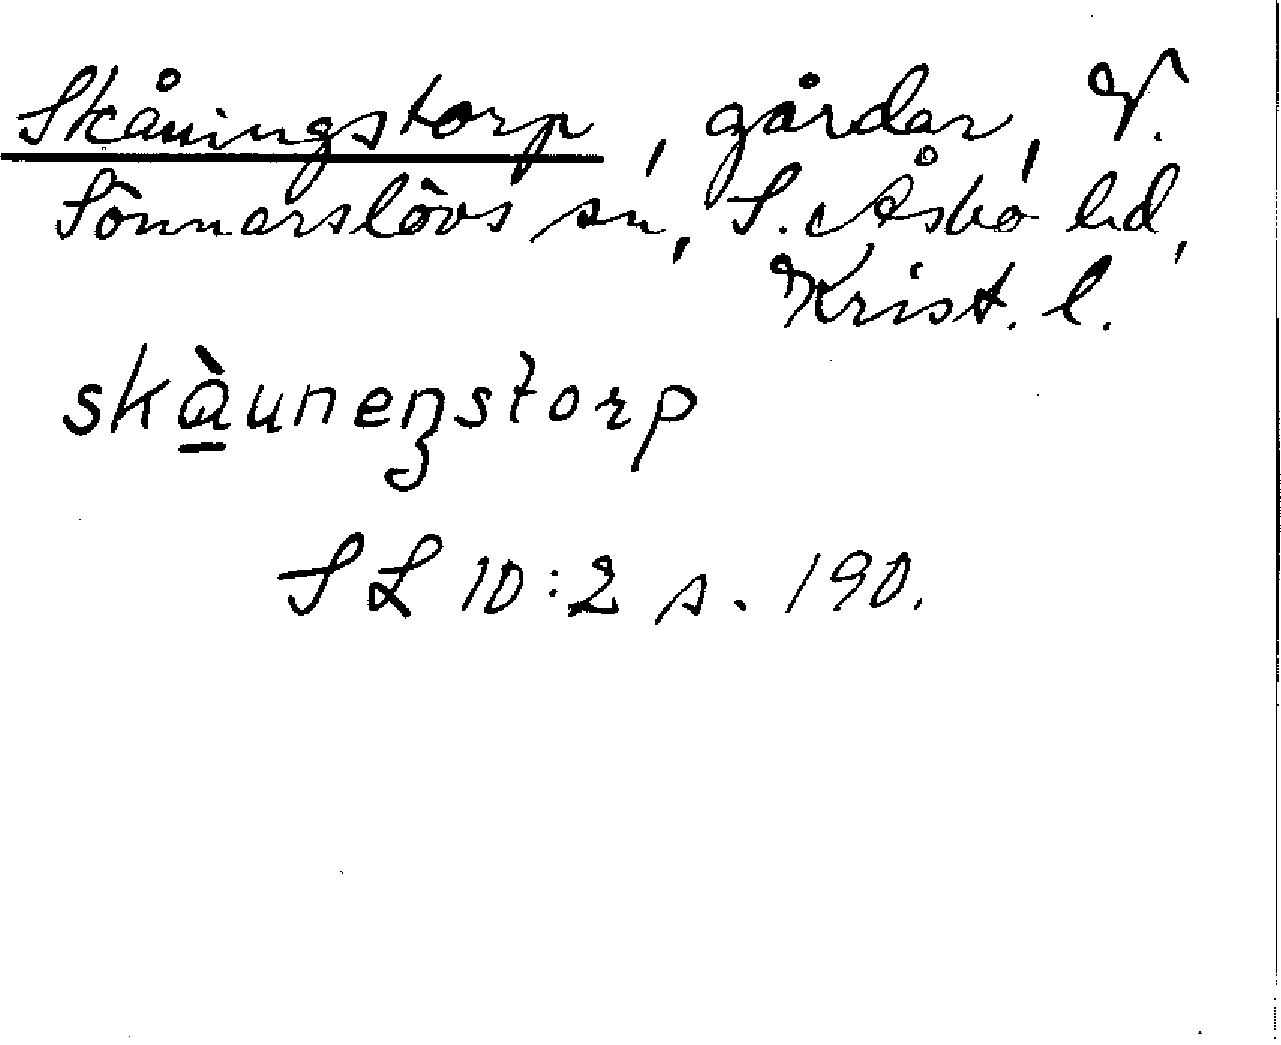 Skåningstorp, gårdar, V.
Sönnarslövs sn, S. Åsbo hd,
Krist. l.
skàuneŋstorp
SL 10:2 s. 190.